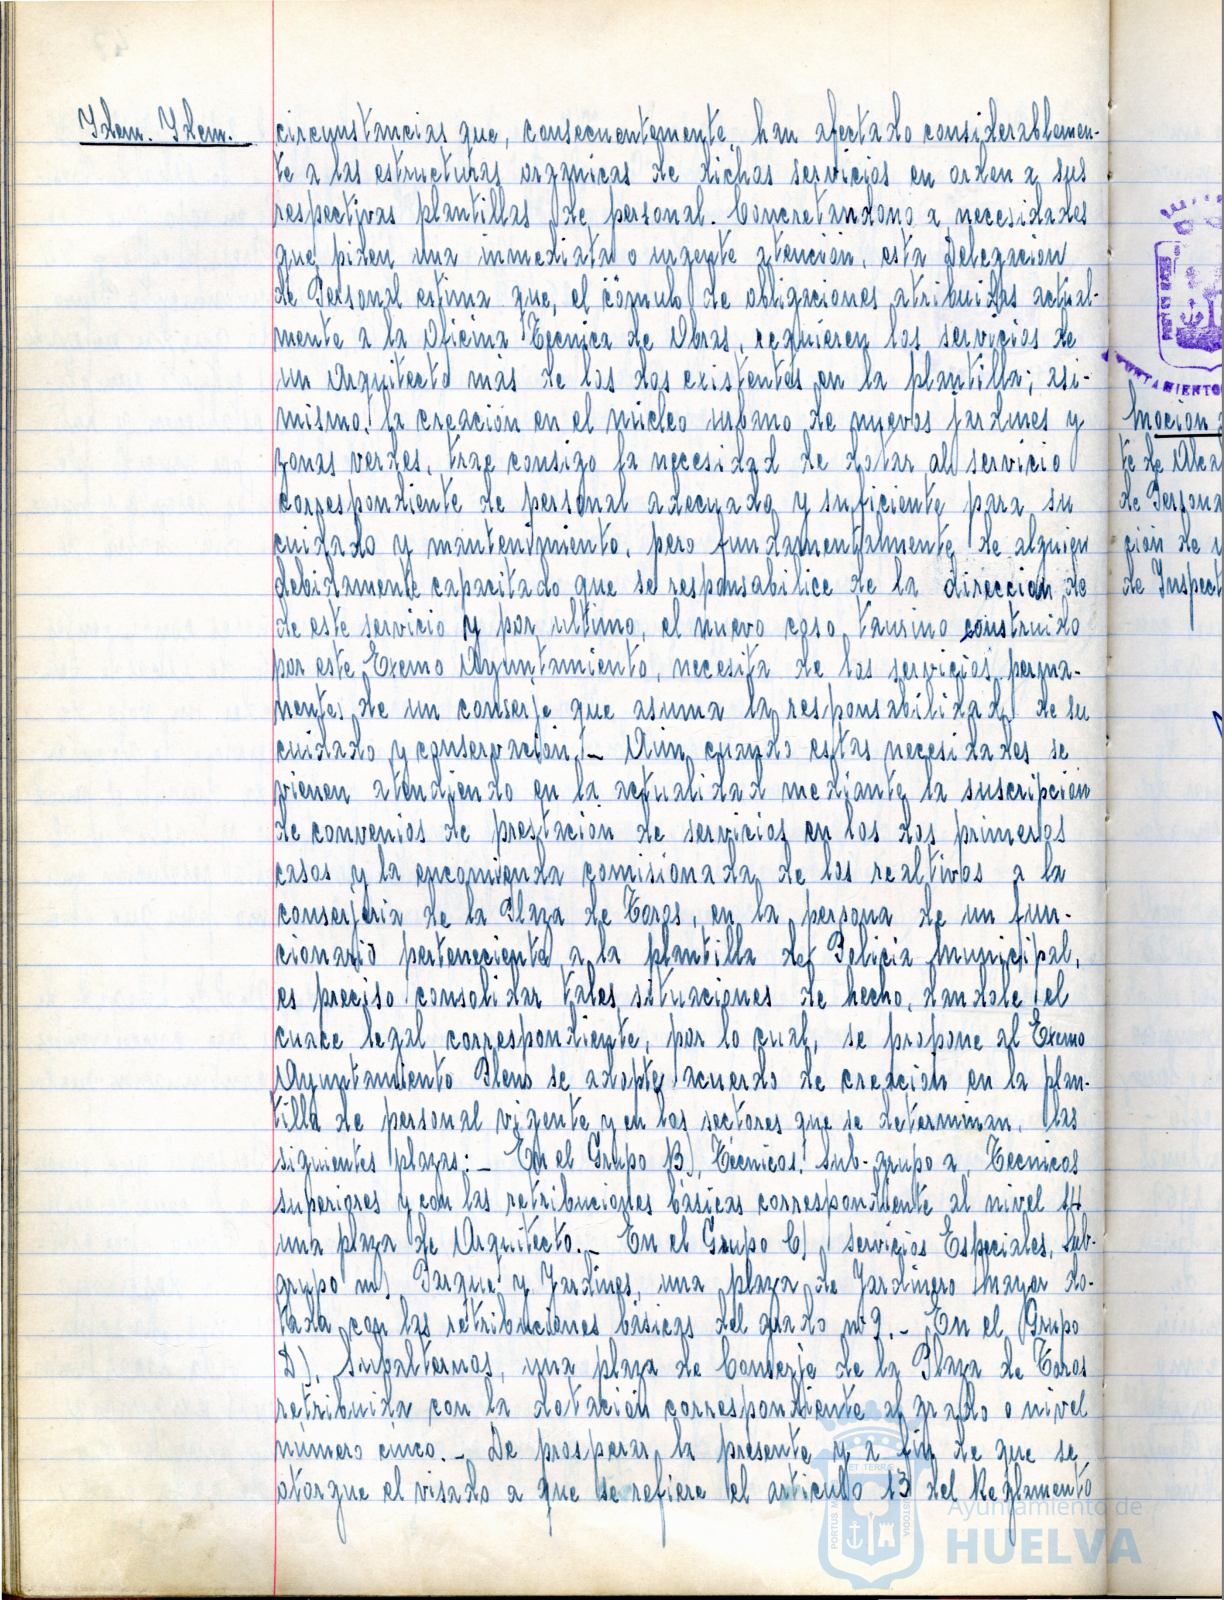 Idem. Idem.
circunstancias que, consecuentemente, han afectado considerablemen-
te a las estructuras organicas de dichos servicios en orden a sus
respectivas plantillas de personal. Concretandono a necesidades
que piden una inmediata o urgente atención, esta Delegacion
de Personal estima que, el cúmulo de obligaciones atribuidas actual-
mente a la Oficina Técnica de Obras, requieren los servicios de
un Arquitecto más de los dos existentes en la plantilla; asi-
mismo, la creación en el núcleo urbano de nuevos jardines y
zonas verdes, trae consigo la necesidad de dotar al servicio
correspondiente de personal adecuado y suficiente para su
cuidado y mantenimiento, pero fundamentalmente de alguien
debidamente capacitado que se responsabilice de la direccion de
de este servicio y por ultimo, el nuevo coso taurino construido
por este Excmo Ayuntamiento, necesita de los servicios perma-
nentes de un conserje que asuma la responsabilidad de su
cuidado y conservación.- Aún cuando estas necesidades se
vienen atendiendo en la actualidad mediante la suscripción
de convenios de prestación de servicios en los dos primeros
casos y la encomienda comisionada de los realtivos a la
conserjeria de la Plaza de Toros, en la persona de un fun-
cionario perteneciente a la plantilla de Policia Municipal,
es preciso consolidar tales situaciones de hecho, dandole el
cuace legal correspondiente, por lo cual, se propone al Excmo
Ayuntamiento Pleno se adopte acuerdo de creación en la plan-
tilla de personal vigente y en los sectores que se determinan, las
siguientes plazas:- En el Grupo B), Técnicos, Sub-grupo a, Tecnicos
superiores y con las retribuciones básicas correspondiente al nivel 14
una plaza de Arquitecto.- En el Grupo C) servicios Especiales, Sub-
grupo m) Parque y Jardines, una plaza de Jardinero Mayor do-
tada con las retribuciones básicas del grado nº 9.- En el Grupo
D), Subalternos, una plaza de Conserje de la Plaza de Toros
retribuida con la dotación correspondiente al grado o nivel
número cinco.- De prosperar la presente y a fin de que se
otorgue el visado a que se refiere el articulo 13 del Reglamento
Moción
te de Alca
de Persona
ción de
de Inspect
Ayuntamiento de
HUELVA